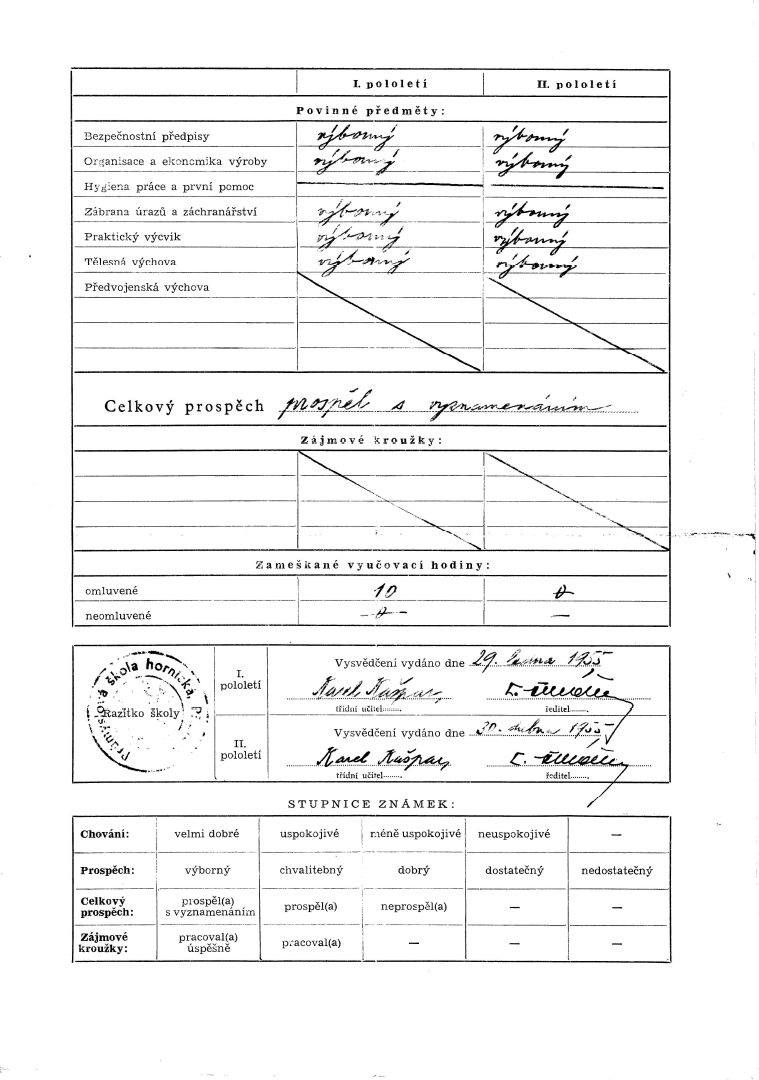 I. pololetí II. pololetí
Povinné předměty:
Bezpečnostní předpisy výborný výborný
Organisace a ekonomika výroby výborný výborný
Hygiena práce a první pomoc
Zábrana úrazů a záchranářství výborný výborný
Praktický výcvik výborný výborný
Tělesná výchova výborný výborný
Předvojenská výchova
Celkový prospěch prospěl s vyznamenáním
Zájmové kroužky:
Zameškané vyučovací hodiny:
omluvené 10 0
neomluvené -0- —
Razítko školy
škola hornická,
I. pololetí
Vysvědčení vydáno dne 29. 1955
Karel Kašpar
třídní učitel ředitel
II. pololetí
Vysvědčení vydáno dne 30. dubna 1955
Karel Kašpar
třídní učitel ředitel
STUPNICE ZNÁMEK:
Chování: velmi dobré uspokojivé méně uspokojivé neuspokojivé —
Prospěch: výborný chvalitebný dobrý dostatečný nedostatečný
Celkový prospěch: prospěl(a) s vyznamenáním prospěl(a) neprospěl(a) — —
Zájmové kroužky: pracoval(a) úspěšně pracoval(a) — — —